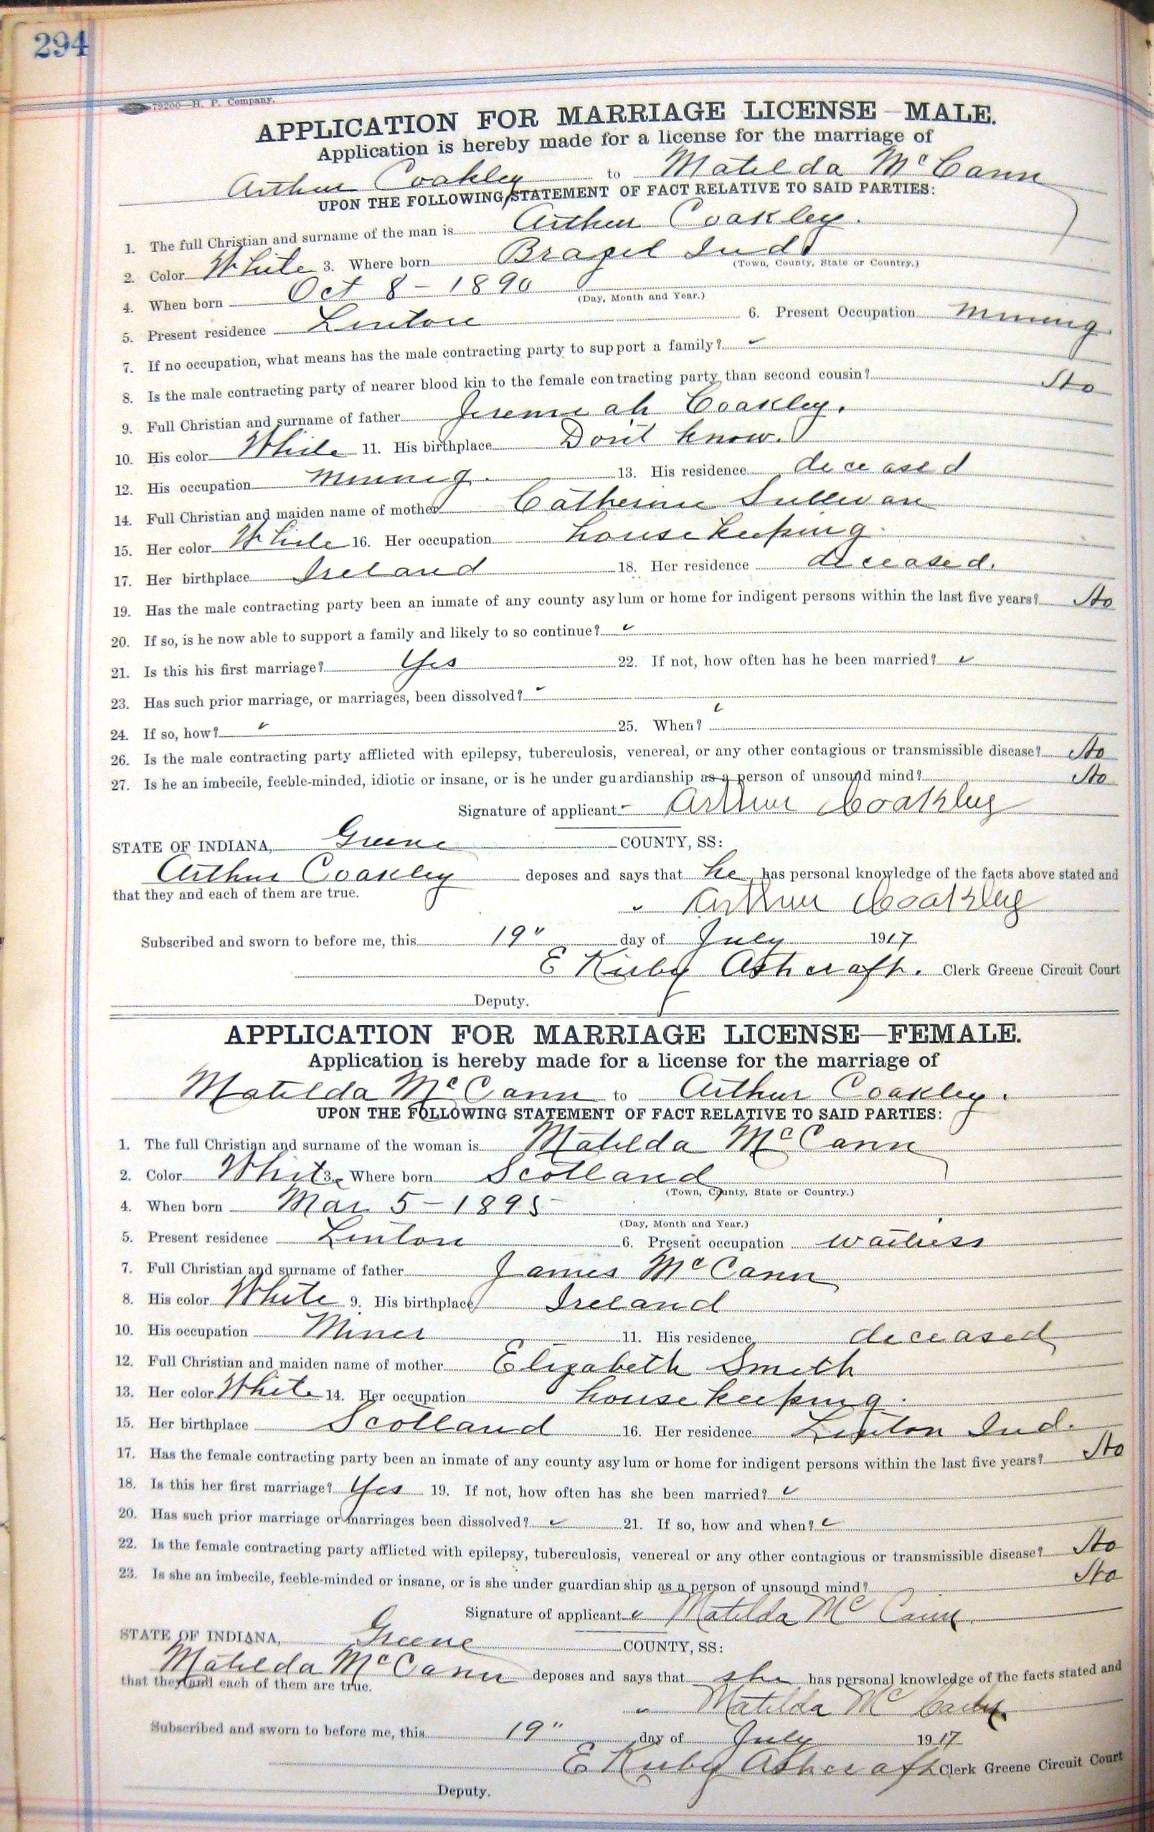 294
79200—H. P. Company.
APPLICATION FOR MARRIAGE LICENSE—MALE.
Application is hereby made for a license for the marriage of
Arthur Coakley to Matilda McCann
UPON THE FOLLOWING STATEMENT OF FACT RELATIVE TO SAID PARTIES:
1. The full Christian and surname of the man is Arthur Coakley.
2. Color White 3. Where born Brazil Ind.
(Town, County, State or Country.)
4. When born Oct 8 - 1890
(Day, Month and Year.)
5. Present residence Linton 6. Present Occupation Mining
7. If no occupation, what means has the male contracting party to support a family? ✓
8. Is the male contracting party of nearer blood kin to the female contracting party than second cousin? No
9. Full Christian and surname of father Jeremiah Coakley.
10. His color White 11. His birthplace Don't know.
12. His occupation Mining. 13. His residence deceased
14. Full Christian and maiden name of mother Catherine Sullivan
15. Her color White 16. Her occupation housekeeping.
17. Her birthplace Ireland 18. Her residence deceased.
19. Has the male contracting party been an inmate of any county asylum or home for indigent persons within the last five years? No
20. If so, is he now able to support a family and likely to so continue? ✓
21. Is this his first marriage? Yes 22. If not, how often has he been married? ✓
23. Has such prior marriage, or marriages, been dissolved? ✓
24. If so, how? ✓ 25. When? ✓
26. Is the male contracting party afflicted with epilepsy, tuberculosis, venereal, or any other contagious or transmissible disease? No
27. Is he an imbecile, feeble-minded, idiotic or insane, or is he under guardianship as a person of unsound mind? No
Signature of applicant Arthur Coakley
STATE OF INDIANA, Greene COUNTY, SS:
Arthur Coakley deposes and says that he has personal knowledge of the facts above stated and
that they and each of them are true.
✓ Arthur Coakley
Subscribed and sworn to before me, this 19" day of July 1917
E Kirby Ashcraft. Clerk Greene Circuit Court
Deputy.
APPLICATION FOR MARRIAGE LICENSE—FEMALE.
Application is hereby made for a license for the marriage of
Matilda McCann to Arthur Coakley.
UPON THE FOLLOWING STATEMENT OF FACT RELATIVE TO SAID PARTIES:
1. The full Christian and surname of the woman is Matilda McCann
2. Color White 3. Where born Scotland
(Town, County, State or Country.)
4. When born Mar 5 - 1895
(Day, Month and Year.)
5. Present residence Linton 6. Present occupation waitress
7. Full Christian and surname of father James McCann
8. His color White 9. His birthplace Ireland
10. His occupation Miner 11. His residence deceased
12. Full Christian and maiden name of mother Elizabeth Smith
13. Her color White 14. Her occupation housekeeping.
15. Her birthplace Scotland 16. Her residence Linton Ind.
17. Has the female contracting party been an inmate of any county asylum or home for indigent persons within the last five years? No
18. Is this her first marriage? Yes 19. If not, how often has she been married? ✓
20. Has such prior marriage or marriages been dissolved? ✓ 21. If so, how and when? ✓
22. Is the female contracting party afflicted with epilepsy, tuberculosis, venereal or any other contagious or transmissible disease? No
23. Is she an imbecile, feeble-minded or insane, or is she under guardianship as a person of unsound mind? No
Signature of applicant ✓ Matilda Mc Cann
STATE OF INDIANA, Greene COUNTY, SS:
Matilda McCann deposes and says that she has personal knowledge of the facts stated and
that they and each of them are true.
✓ Matilda Mc
Subscribed and sworn to before me, this 19" day of July 1917
E Kirby Ashcraft Clerk Greene Circuit Court
Deputy.